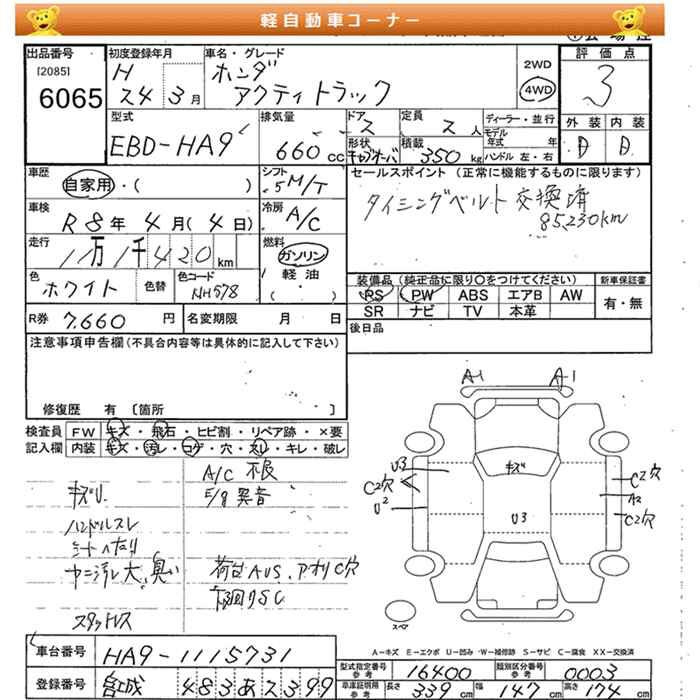 軽自動車コーナー
出品番号
[2085]
6065
初度登録年月
H
24 3月
車名・グレード
ホンダ
アクティトラック
2WD
4WD
評価点
3
外装 内装
D D
型式
EBD-HA9
排気量
660 cc
ドア
2
定員
2 人
形状
キャブオーバ
積載
350 kg
ディーラー・並行
モデル年式 年
ハンドル 左・右
車歴
自家用・( )
シフト
5 M/T
セールスポイント (正常に機能するものに限ります)
タイミングベルト交換済
85,230km
車検
R8年 4月(4日)
冷房
A/C
走行
11万1千420km
燃料
ガソリン
軽油
( )
色
ホワイト
色替
色コード
NH578
装備品 (純正品に限り○をつけてください)
PS PW ABS エアB AW
SR ナビ TV 本革
新車保証書
有・無
R券 7,660 円
名変期限 月 日
後日品
注意事項申告欄(不具合内容等は具体的に記入して下さい)
修復歴 有 〔箇所 〕
検査員記入欄
FW キズ・飛石・ヒビ割・リペア跡・×要
内装 キズ・汚レ・コゲ・穴・スレ・キレ・破レ
A/C 不良
E/g 異音
キズU.
ハンドルスレ
シートヘタリ
ヤニ汚レ大、臭い
荷台AUS、アオリC穴
下回りSC
スタットレス
A-1 A-1
U3
C2穴
U2
キズU
U3
C2穴
A2
C2穴
スペア
A—キズ E—エクボ U—凹み ・W—補修跡 S—サビ C—腐食 XX—交換済
車台番号 HA9-1115731
登録番号 宮城 483あ2399
型式指定番号 参考 16400
類別区分番号 参考 0003
車庫証明用 参考 長さ 339 cm 幅 147 cm 高さ 174 cm